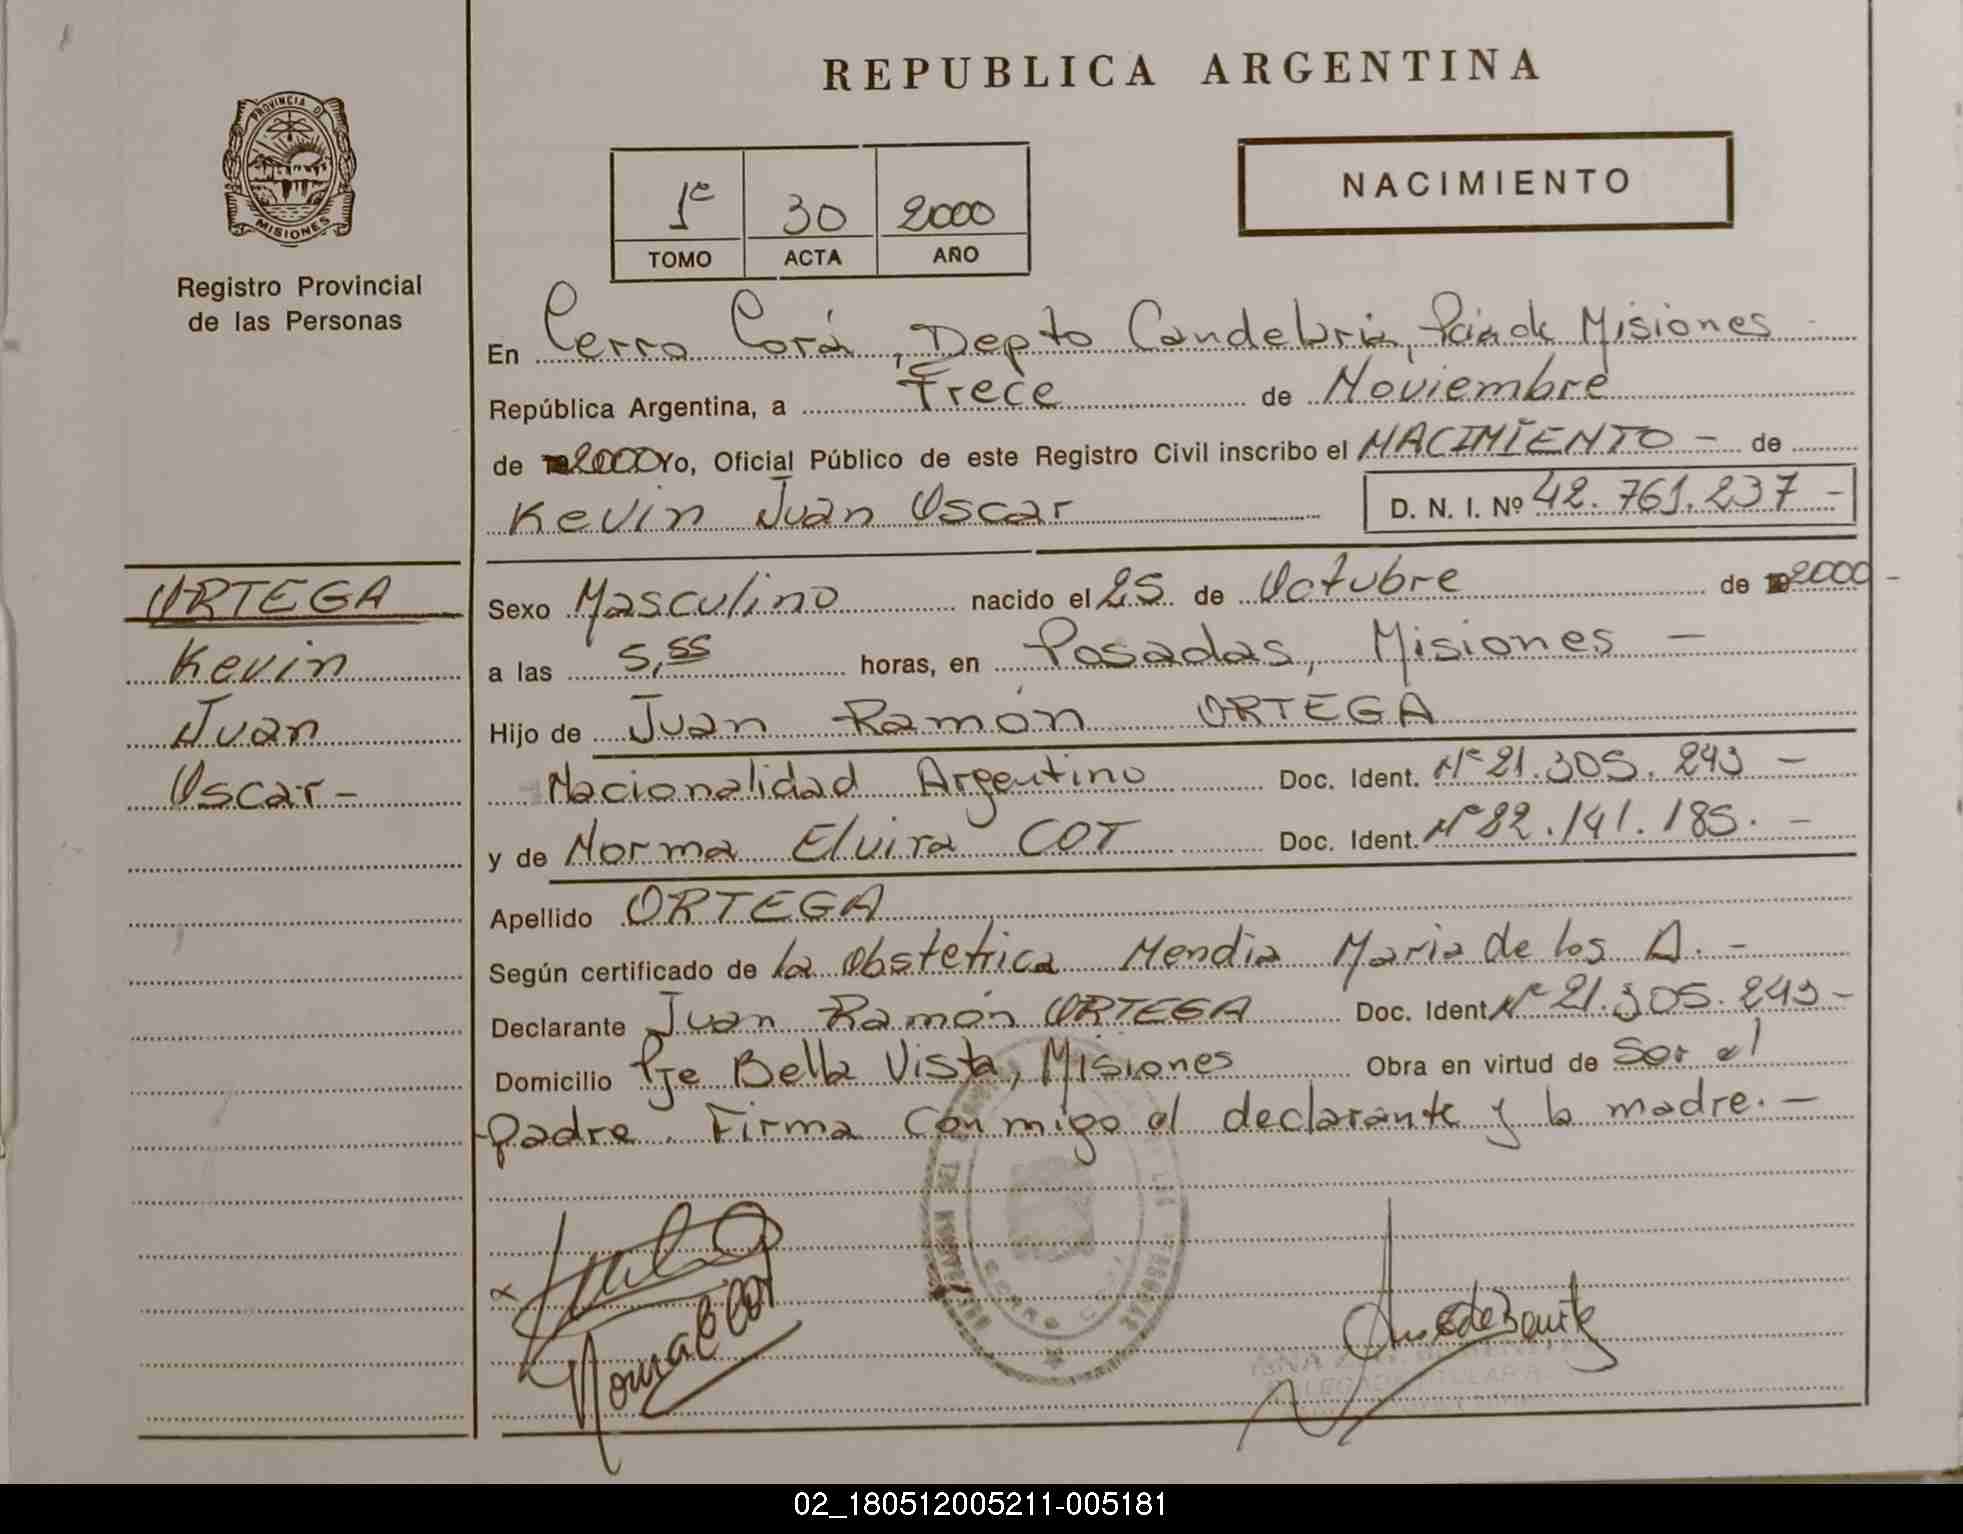 REPUBLICA ARGENTINA
PROVINCIA DE
MISIONES
Registro Provincial
de las Personas
1º 30 2000
TOMO ACTA AÑO
NACIMIENTO
En Cerro Corá, Depto Candelaria, Pcia de Misiones
República Argentina, a Trece de Noviembre
de 2000 Yo, Oficial Público de este Registro Civil inscribo el NACIMIENTO - de
Kevin Juan Oscar D. N. I. Nº 42.761.237 -
ORTEGA
Kevin
Juan
Oscar -
Sexo Masculino nacido el 25 de Octubre de 2000 -
a las 5,55 horas, en Posadas, Misiones -
Hijo de Juan Ramón ORTEGA
Nacionalidad Argentino Doc. Ident. Nº 21.305.243 -
y de Norma Elvira COT Doc. Ident. Nº 22.141.185. -
Apellido ORTEGA
Según certificado de la obstetrica Mendia Maria de los A. -
Declarante Juan Ramón ORTEGA Doc. Ident Nº 21.305.243 -
Domicilio Pje Bella Vista, Misiones Obra en virtud de Ser el
padre. Firma conmigo el declarante y la madre. -
02_180512005211-005181